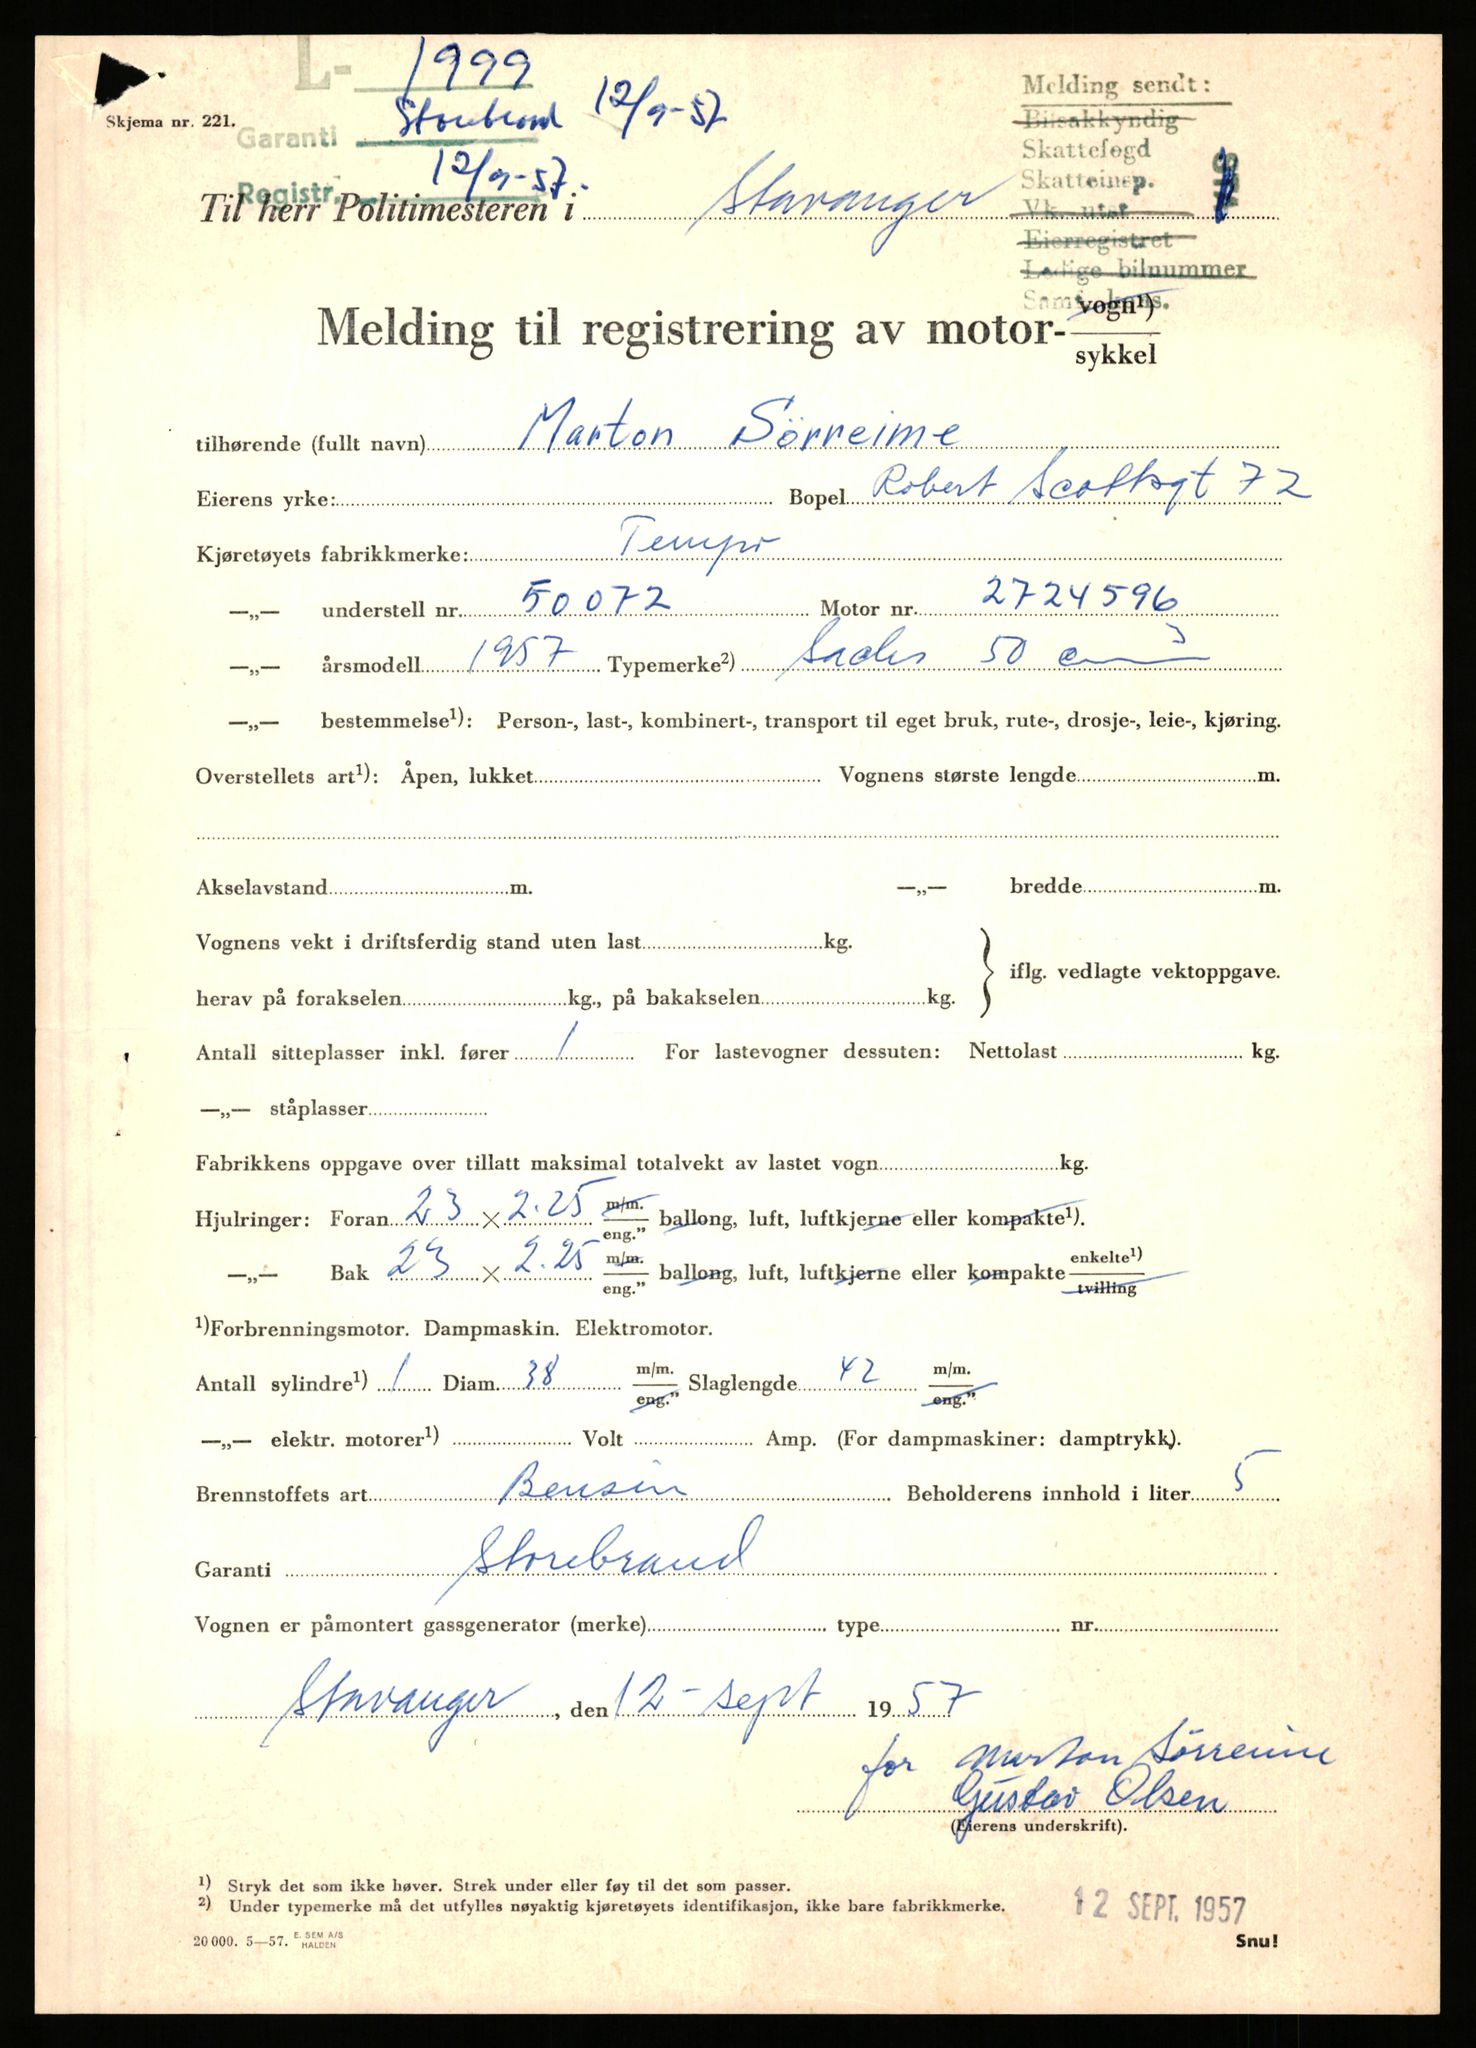 L- 1999
Skjema nr. 221.
Garanti Storebrand 12/9-57
Registr. 12/9-57.
Melding sendt:
Bilsakkyndig
Skattefogd
Skatteinsp.
Vk. utst
Eierregistret
Ledige bilnummer
Til herr Politimesteren i Stavanger
Melding til registrering av motor- vogn¹) / sykkel
tilhørende (fullt navn) Marton Sörreime
Eierens yrke: Bopel Robert Scottsgt 72
Kjøretøyets fabrikkmerke: Tempo
—„— understell nr. 50072 Motor nr. 2724596
—„— årsmodell 1957 Typemerke²) Sachs 50 cm³
—„— bestemmelse¹): Person-, last-, kombinert-, transport til eget bruk, rute-, drosje-, leie-, kjøring.
Overstellets art¹): Åpen, lukket Vognens største lengde m.
Akselavstand m. —„— bredde m.
Vognens vekt i driftsferdig stand uten last kg.
herav på forakselen kg., på bakakselen kg. } iflg. vedlagte vektoppgave.
Antall sitteplasser inkl. fører 1 For lastevogner dessuten: Nettolast kg.
—„— ståplasser
Fabrikkens oppgave over tillatt maksimal totalvekt av lastet vogn kg.
Hjulringer: Foran 23 × 2.25 m/m. / eng." ballong, luft, luftkjerne eller kompakte¹).
—„— Bak 23 × 2.25 m/m. / eng." ballong, luft, luftkjerne eller kompakte enkelte¹) / tvilling
¹)Forbrenningsmotor. Dampmaskin. Elektromotor.
Antall sylindre¹) 1 Diam. 38 m/m. / eng." Slaglengde 42 m/m. / eng."
—„— elektr. motorer¹) Volt Amp. (For dampmaskiner: damptrykk).
Brennstoffets art Bensin Beholderens innhold i liter 5
Garanti Storebrand
Vognen er påmontert gassgenerator (merke) type nr.
Stavanger, den 12-sept 1957
for Marton Sörreime
Gustav Olsen
(Eierens underskrift).
¹) Stryk det som ikke høver. Strek under eller føy til det som passer.
²) Under typemerke må det utfylles nøyaktig kjøretøyets identifikasjon, ikke bare fabrikkmerke.
12 SEPT. 1957
20 000. 5—57. E. SEM A/S HALDEN
Snu!